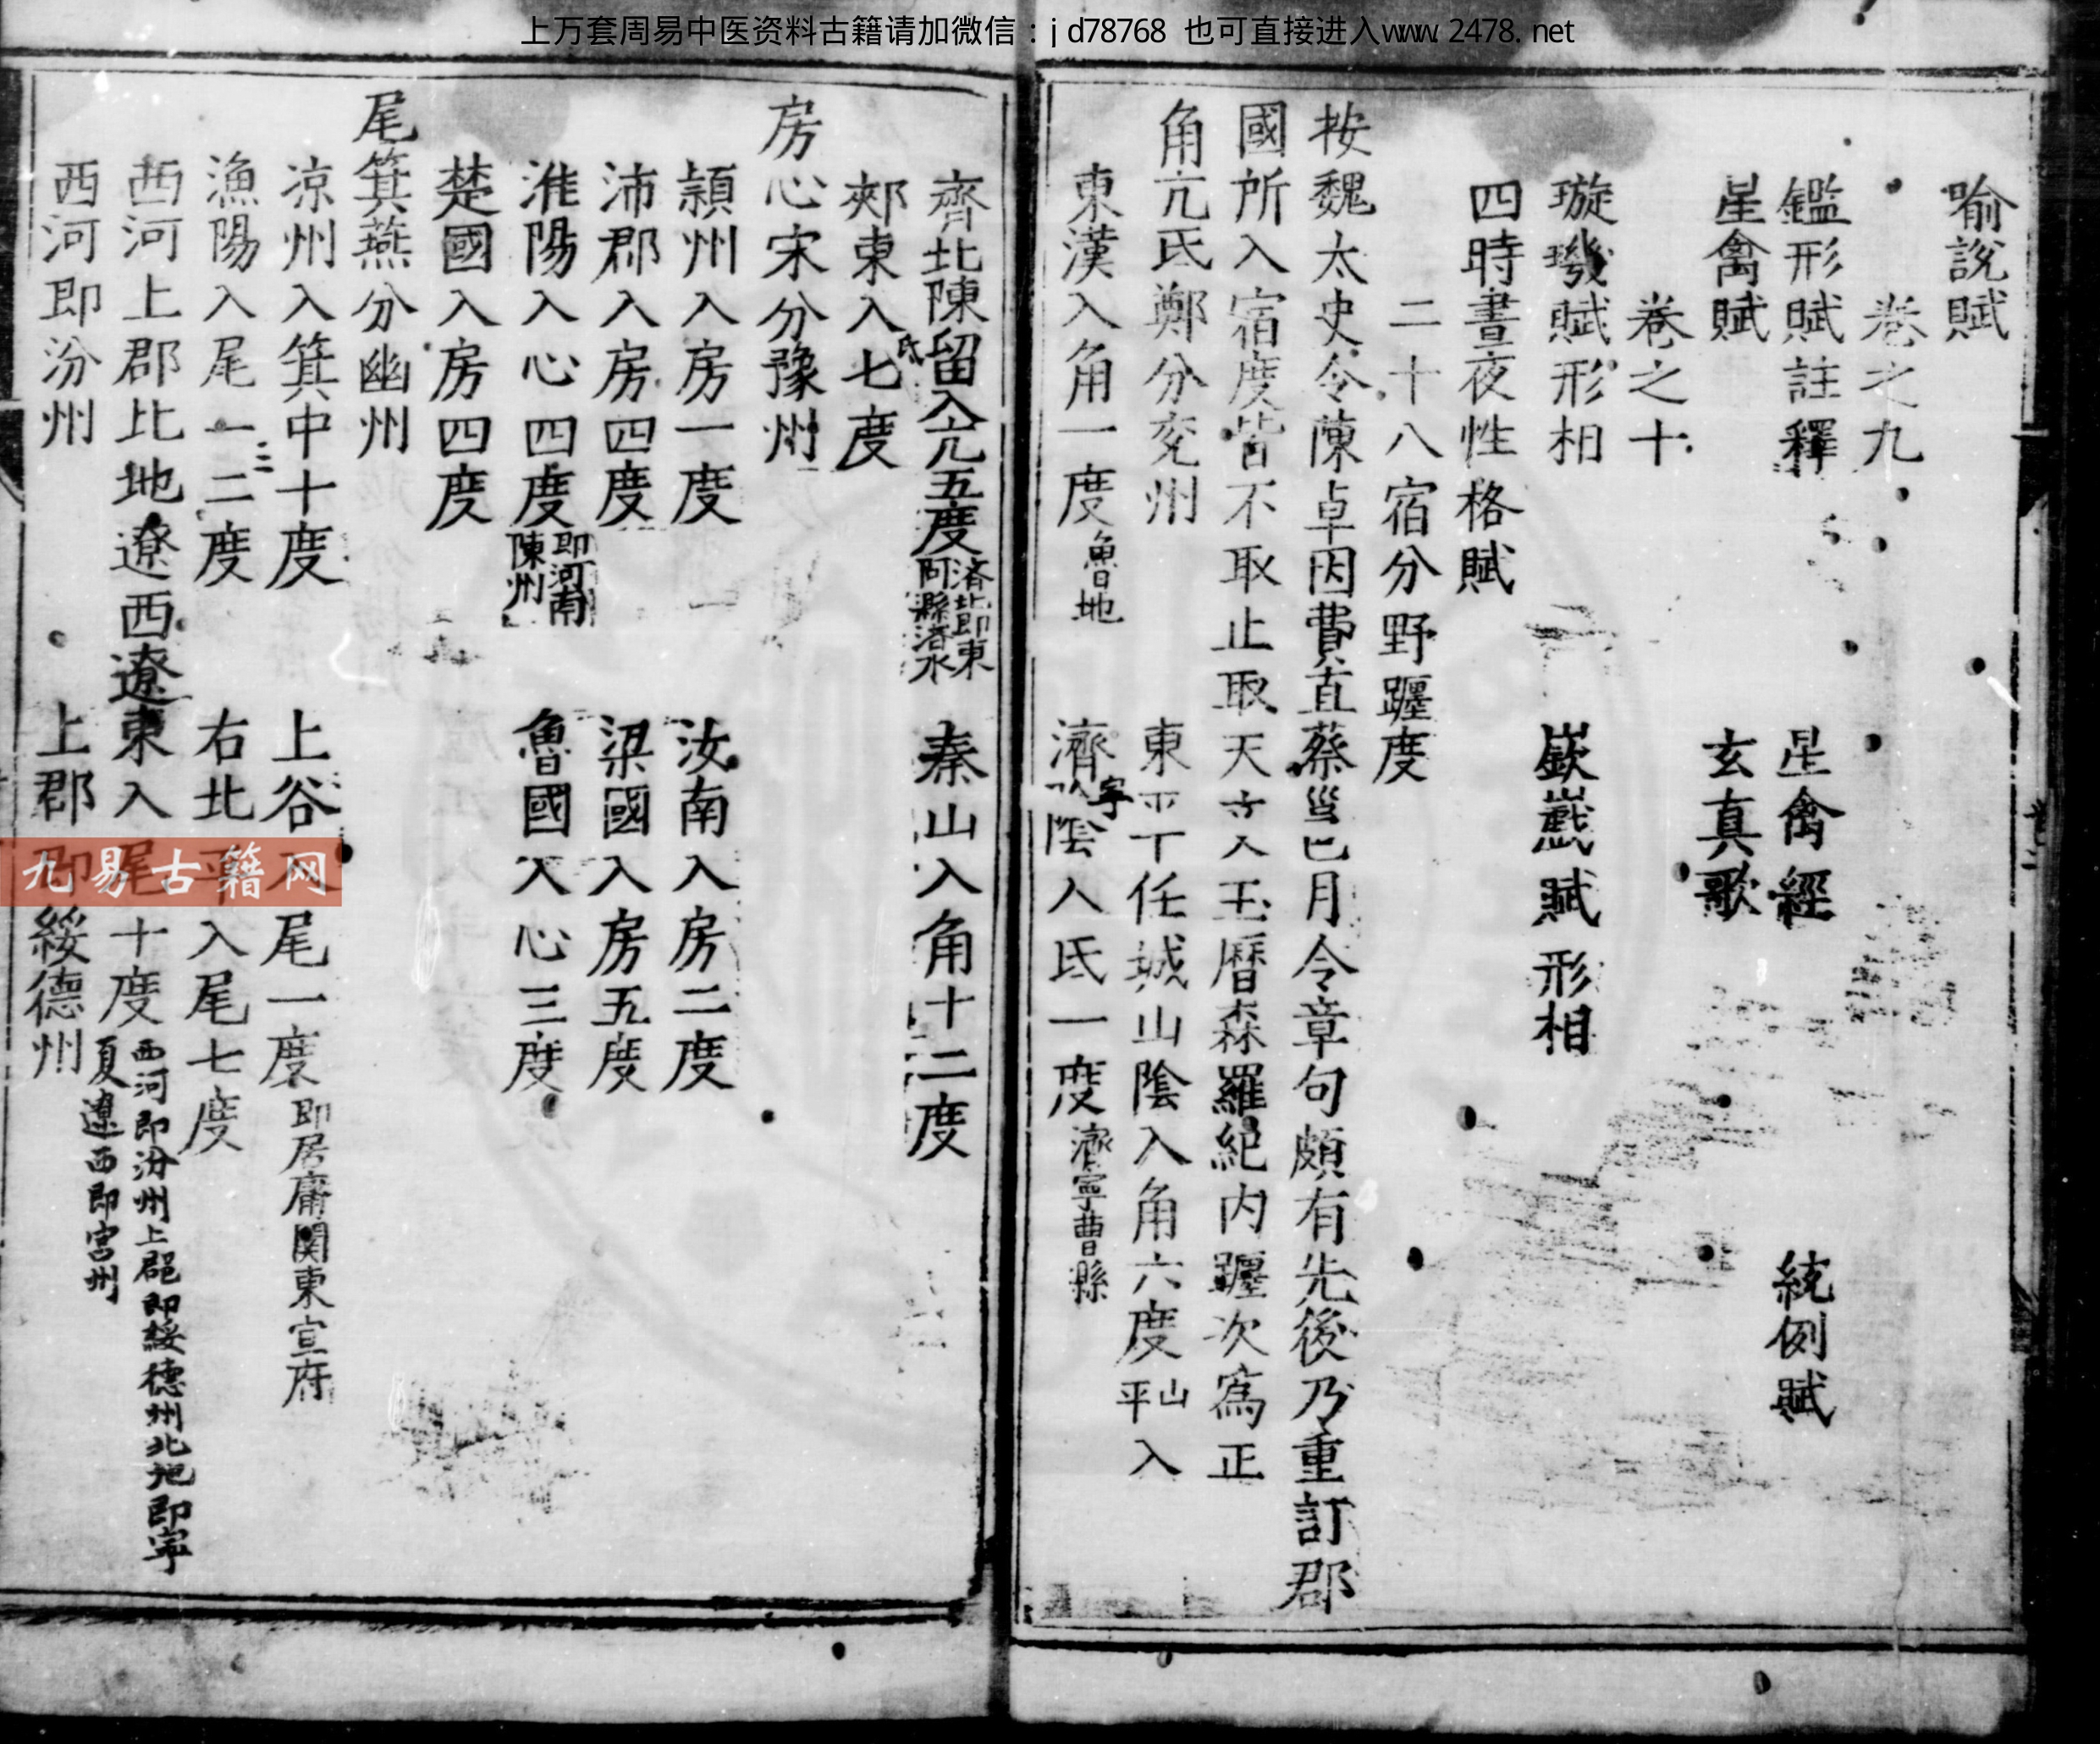 上万套周易中医资料古籍请加微信：jd78768 也可直接进入www.2478.net
喻說賦
卷之九
鑑形賦註釋 星禽經 統例賦
星禽賦 玄真歌
卷之十
璇璣賦形相 嶔嶬賦形相
四時晝夜性格賦
二十八宿分野躔度
按魏太史令陳卓因費直蔡邕月令章句頗有先後乃重訂郡
國所入宿度皆不取止取天文玉曆森羅紀内躔次為正
角亢氐鄭分兗州 東平任城山陰入角六度山平入
東漢入角一度魯地 濟陰入氐一度濟寧曹縣
寧
齊北陳留入亢五度濟北即東阿縣濟水 泰山入角十二度
郟東入氐七度
房心宋分豫州
潁州入房一度 汝南入房二度
沛郡入房四度 梁國入房五度
淮陽入心四度即河南陳州 魯國入心三度
楚國入房四度
尾箕燕分幽州
凉州入箕中十度 上谷入尾一度即居庸関東宣府
漁陽入尾一二三度 右北平入尾七度
西河上郡比地遼西遼東入尾十度西河即汾州上郡即綏德州北地即寧夏遼西即宮州
西河即汾州 上郡即綏德州
九易古籍网